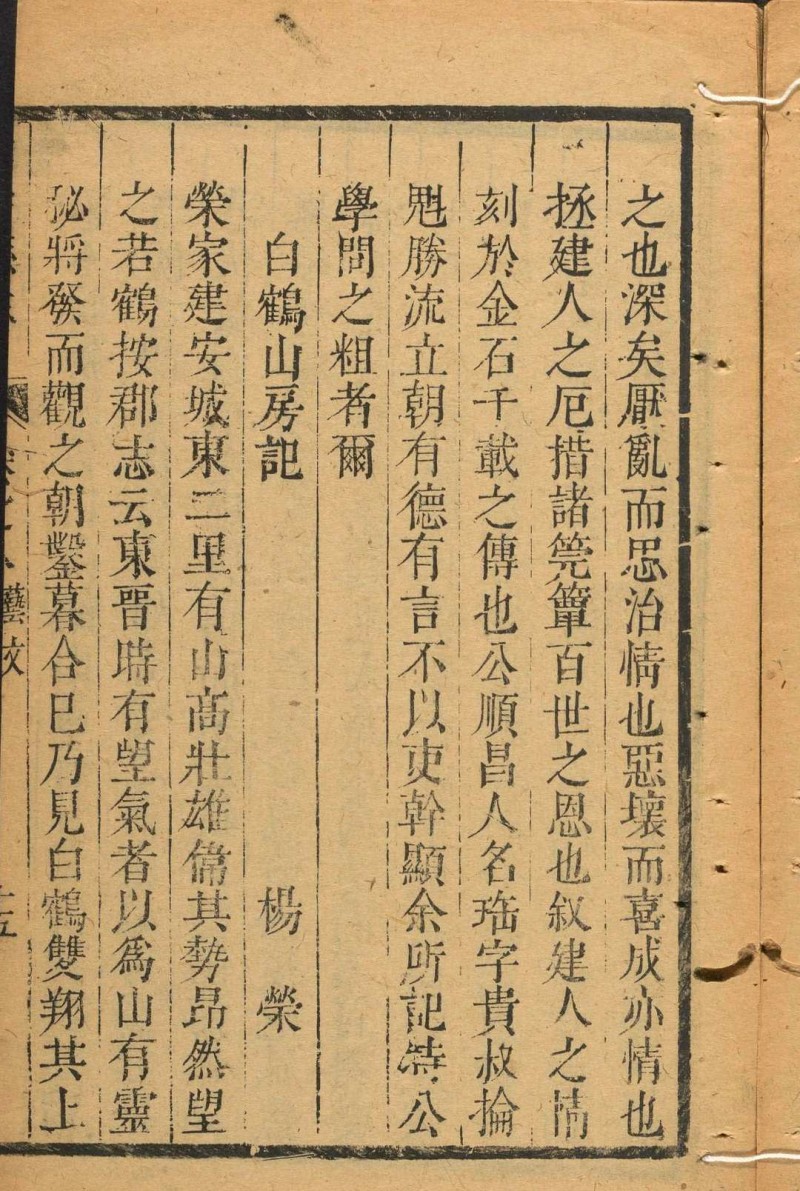 之也深矣厭亂而思治情也惡壞而喜成亦情也
拯建人之厄措諸筦簟百世之恩也叙建人之情
刻於金石千載之傳也公順昌人名瑎字貴叔掄
魁勝流立朝有德有言不以吏幹顯余所記特公
學問之粗者爾
白鶴山房記　楊榮
榮家建安城東二里有山高壯雄偹其勢昂然望
之若鶴按郡志云東晉時有望氣者以爲山有靈
秘將發而觀之朝鑿暮合巳乃見白鶴雙翔其上
藝文